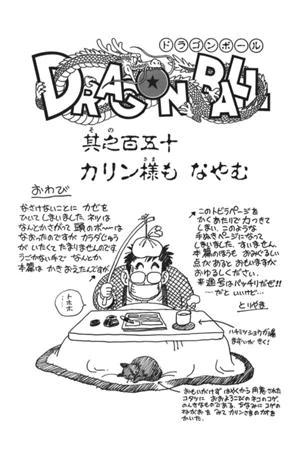 ドラゴンボール
DRAGON BALL
其之百五十
その
カリン様も なやむ
さま
おわび
なさけないことに カゼを
ひいてしまいました。ネツは
なんとかさがって 頭のボ〜は
なおったのですが カラダじゅう
がいたくて たまりませんのです
うごかない手で なんとか
本篇は かきおえたんですが
このトビラページを
かくあたりで 力つきて
しまい、このような
手ぬきページになって
しまいました。すいません。
本篇のほうも おみぐるしい
点があると おもいますが
おゆるしください。
来週号はバッチリだぜ!!
…だと いいけど…
とりやま
トホホ
ハチミツショウガ湯
ますいが きく!
おもいがけず はやくから 用意された
コタツに おおよろこびの ネコのコゲ。
のんきなものである。ちなみに コゲの
ねがおを みて カリンさまのかおを
かいた。